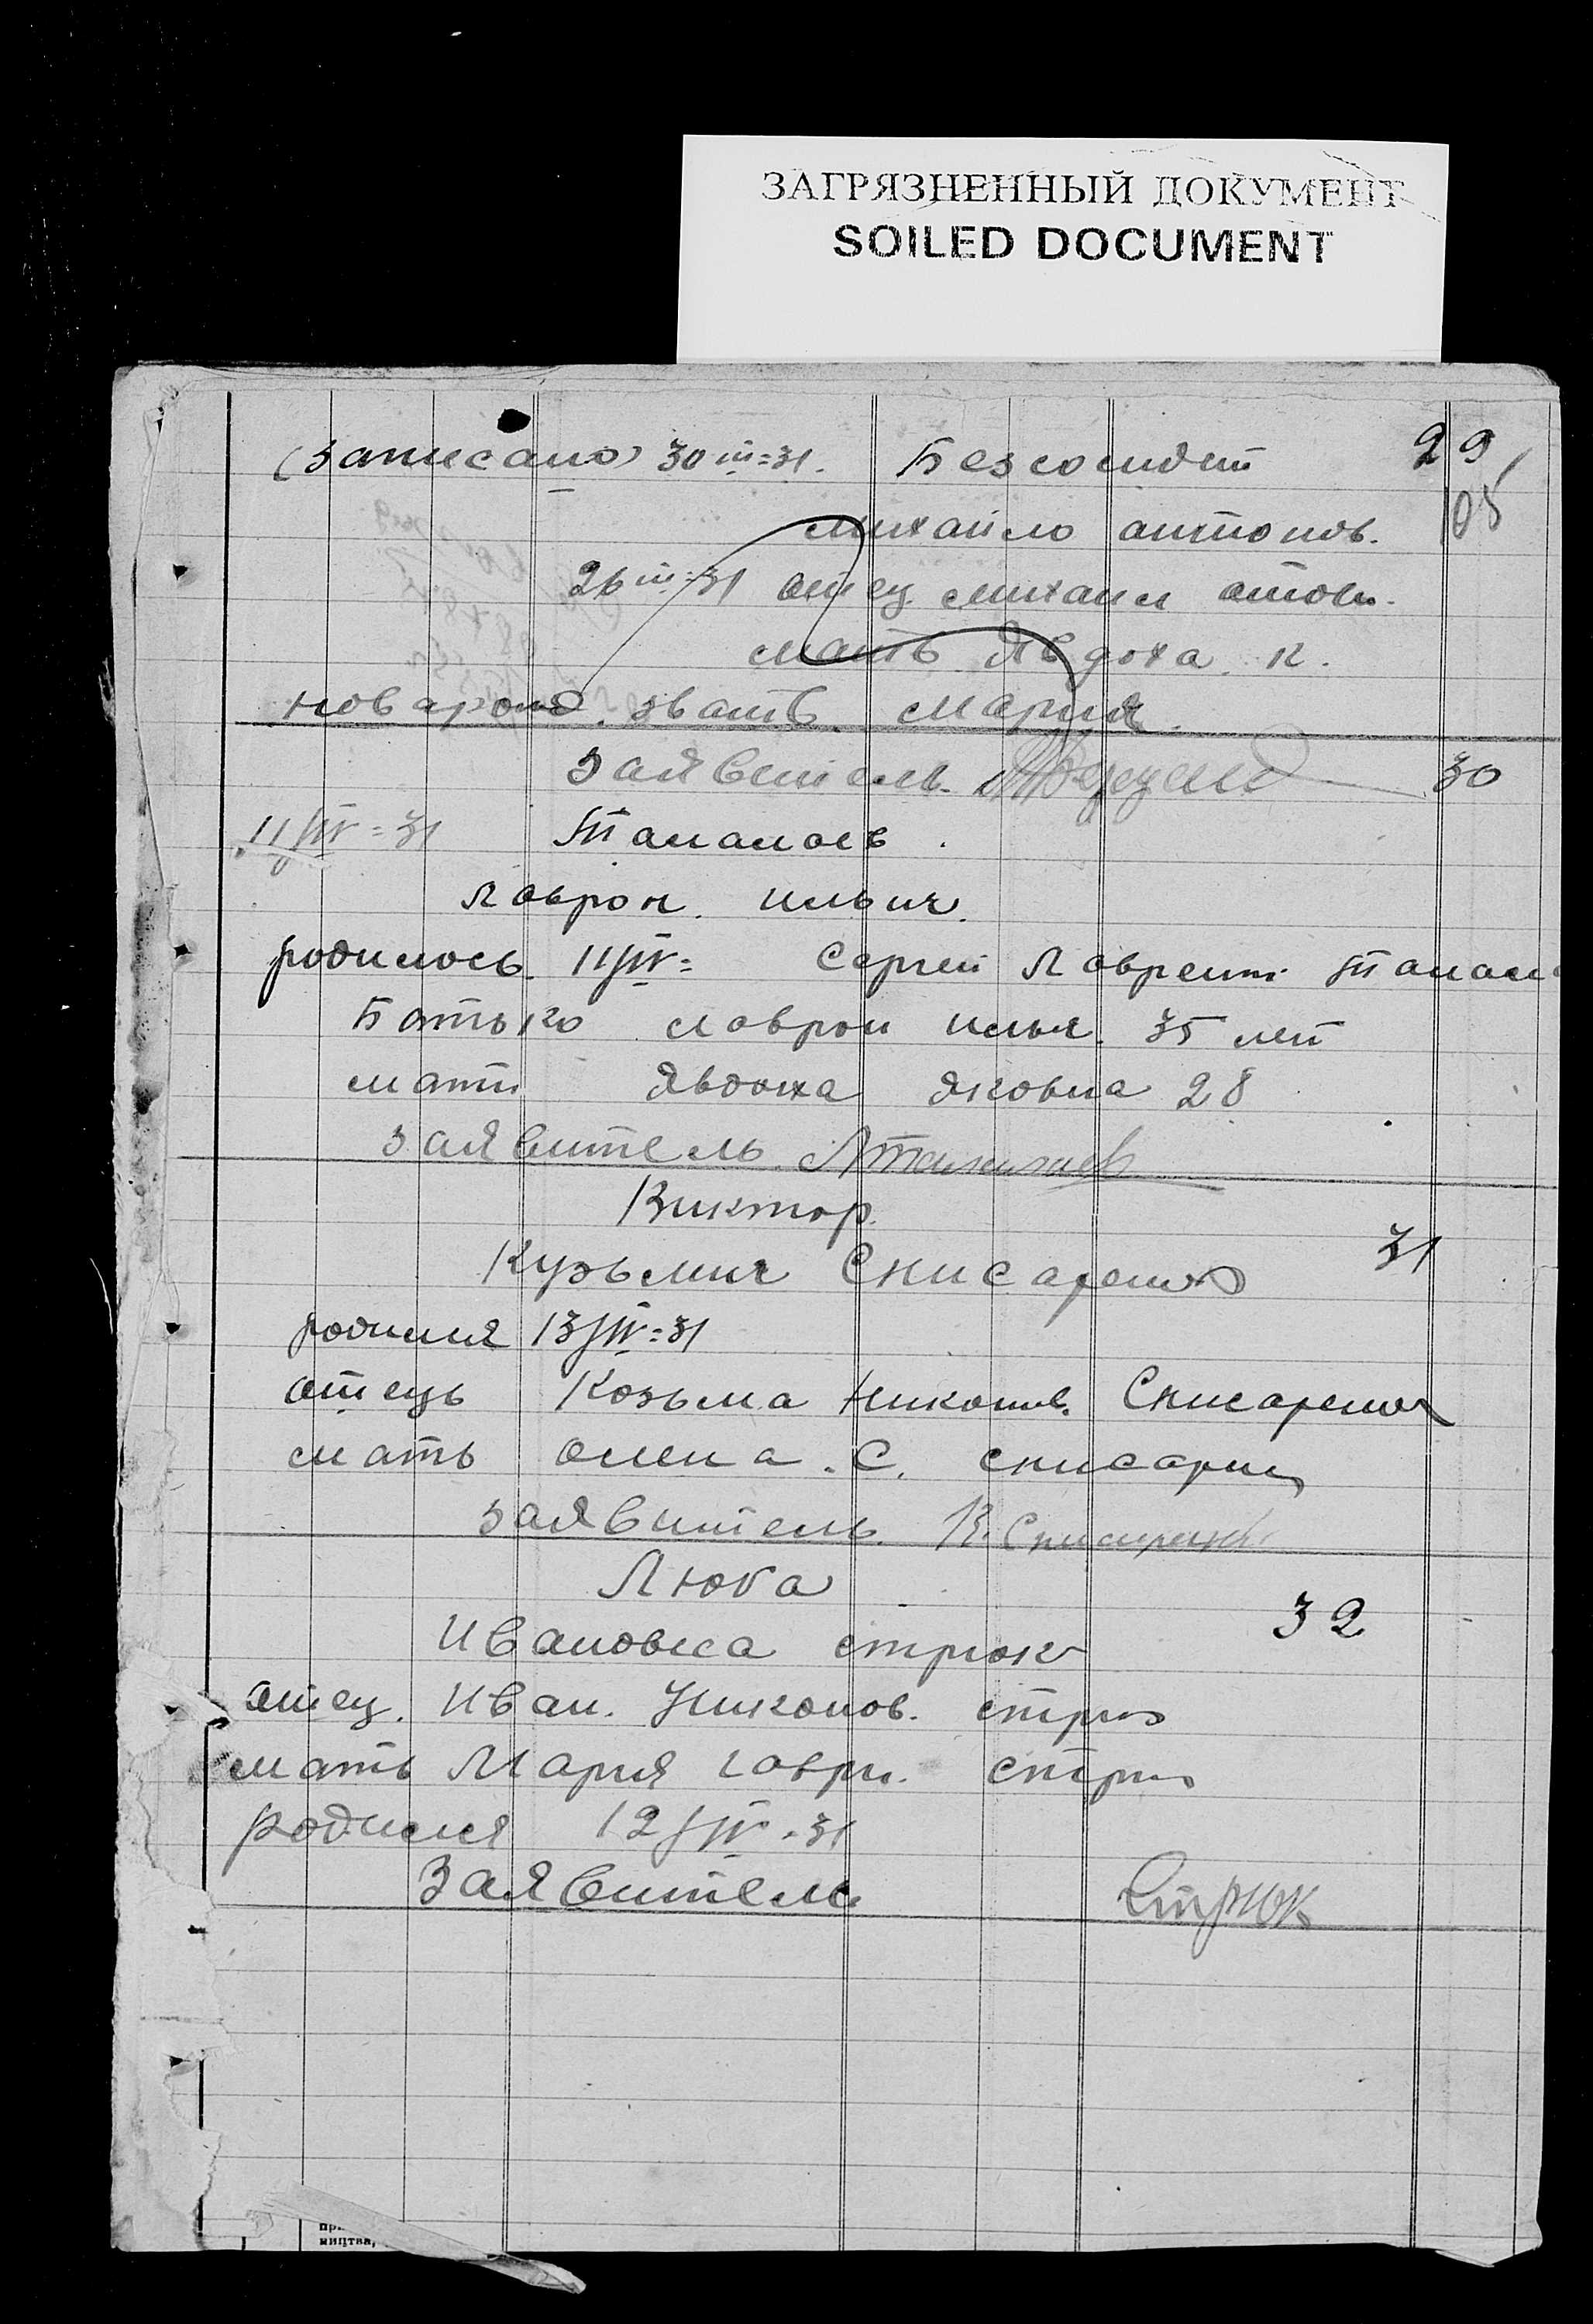 ЗАГРЯЗНЕННЫЙ ДОКУМЕНТ
SOILED DOCUMENT
(записано) 30 III=31. 29
105
михайло антонов.
26 III=31 отец михаил
мать Явдоха К.
звать мария.
заявитель 30
11/IV=31 Тананаев.
Лаврон. ильич.
родилось. 11/IV= Сергей Лаврент. Танан
Батько лаврон илья. 35 лет
мати Явдоха яковна 28
заявитель. ЛТананаев
Виктор.
Кузьмич Снисаренко 31
родился 13/IV=31
отець Козьма никонов. Снисаренко
мать олена. С.
заявитель. К. Снисаренко
Люба
32
Ивановна стрюк
отец. Иван. Никонов. стрю
мать Мария гаври. стрю
родился 12/IV=31
заявитель Стрюк
ництва,